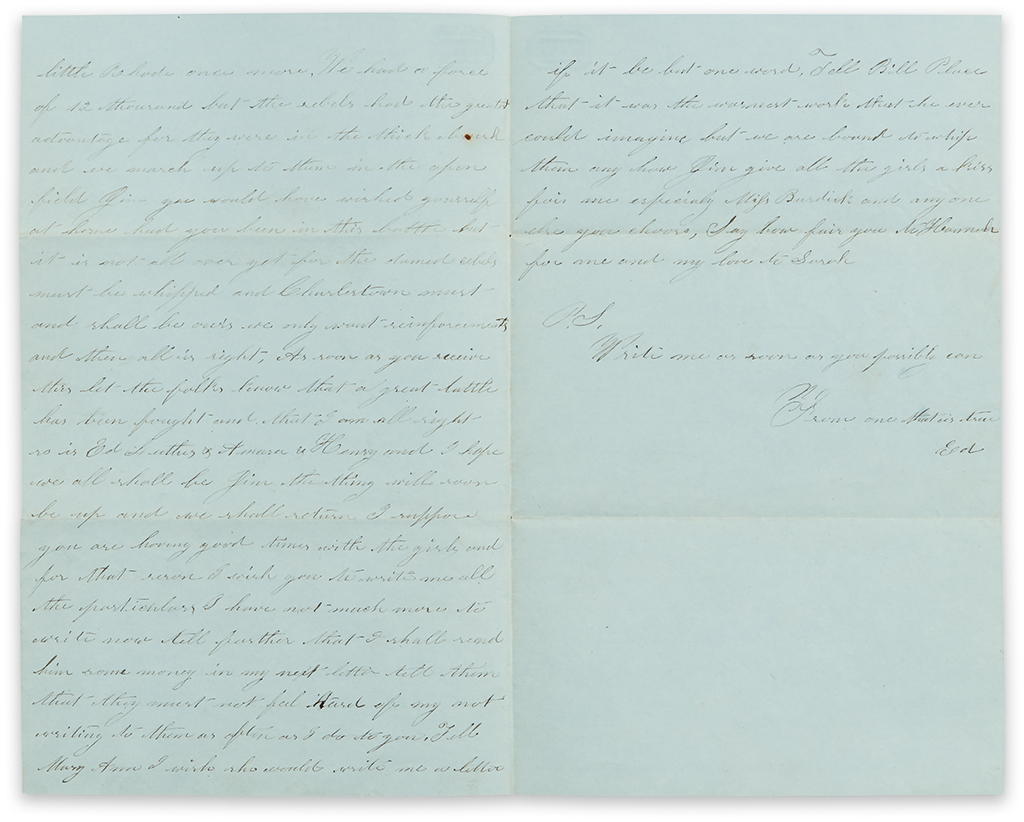 little Rhode once more, We had a force
of 12 thousand but the rebels had the great
advantage for they were in the thick
and we march up to them in the open
field Jim you would have wished yourself
at home had you been in this battle but
it is not all over yet for the damed rebels
must be whipped and Charlestown must
and shall be ours we only want reinforcements
and then all is right, As soon as you receive
this let the folks know that a great battle
has been fought and that I am all right
so is Ed Luther & Amara & Henry and I hope
we all shall be Jim the thing will soon
be up and we shall return I suppose
you are having good times with the girls and
for that reson I wish you to write me all
the particklars, I have not much more to
write now tell farther that I shall send
him some money in my next letter tell them
that they must not feel Hard of my not
writing to them as often as I do to you, Tell
Mary Ann I wish she would write me a letter
if it be but one word, Tell Bill Place
that it was the warmest work that he ever
could imagine but we are bound to whip
them any how Jim give all the girls a kiss
for me especialy Miss Burdick and any one
else you choose, Say how fair you to Hannah
for me and my love to Sarah
P.S.
Write me as soon as you possibly can
From one that is true
Ed